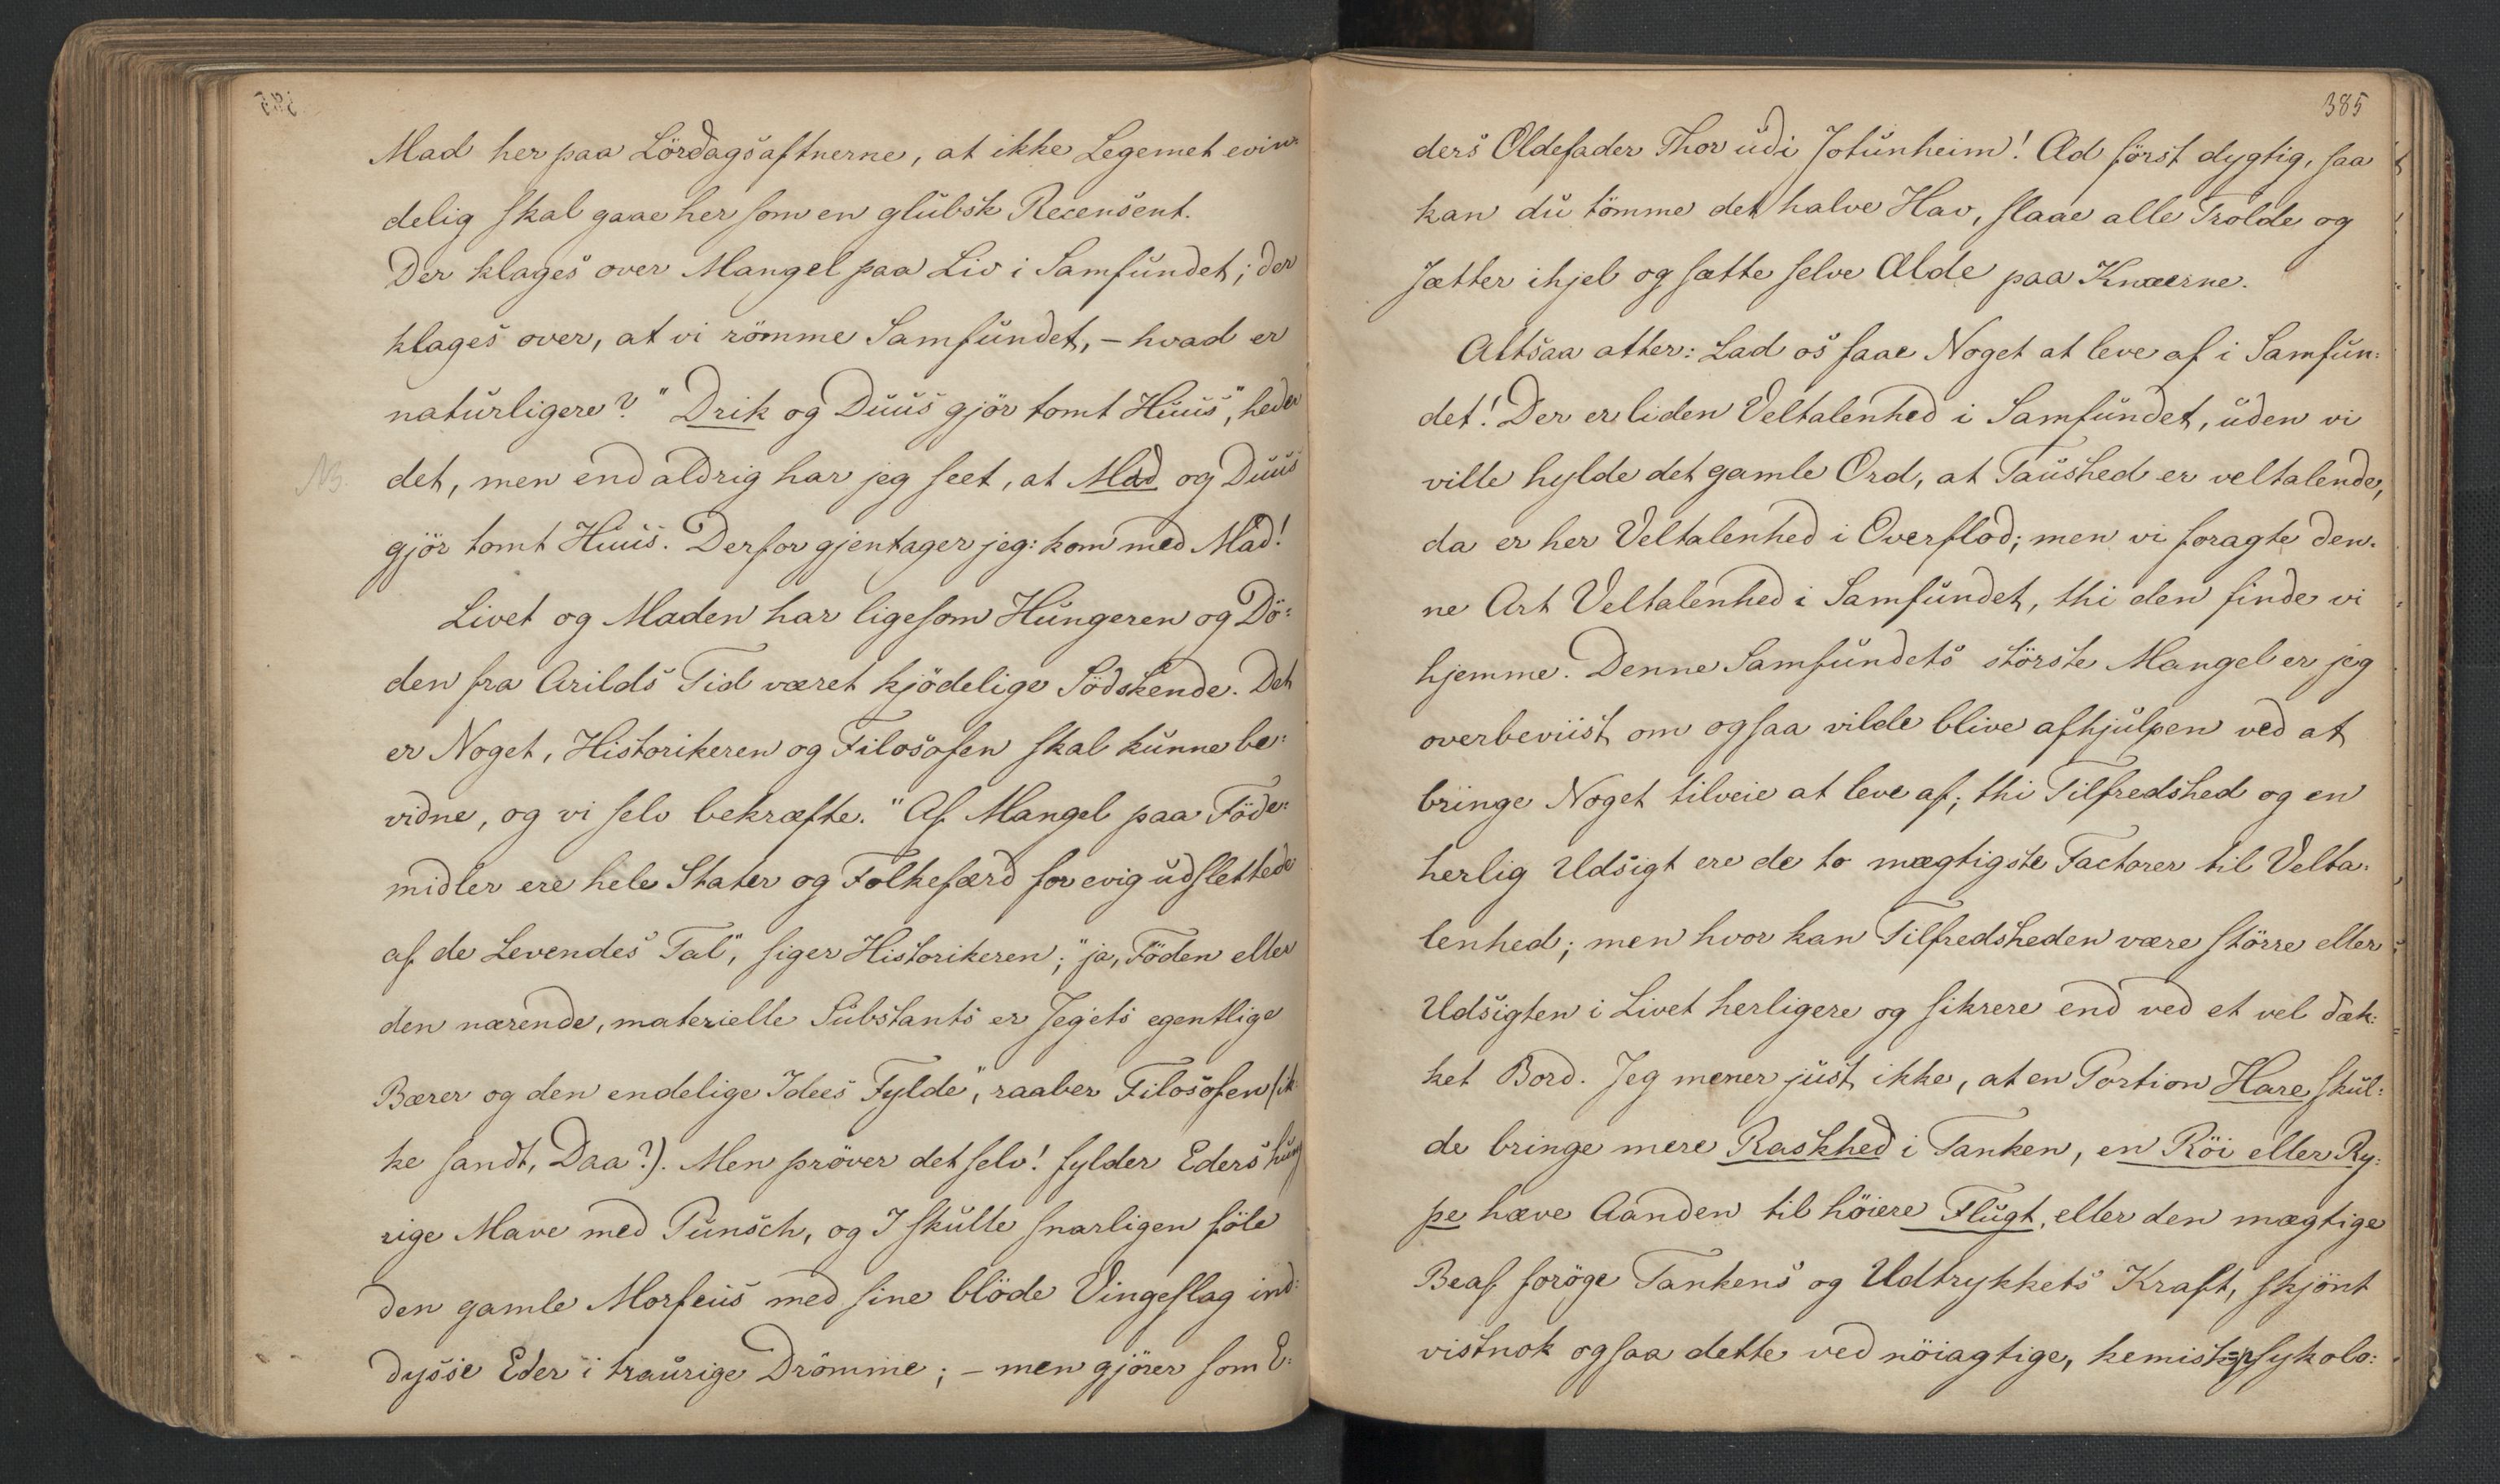 Mad her paa Lördagsaftnerne, at ikke Legemet evin-
delig skal gaae her som en glubsk Recensent.
Der klages over Mangel paa Liv i Samfundet; der
klages over, at vi römme Samfundet, – hvad er
naturligere? "Drik og Duus gjör tomt Huus", heder
NB.
det, men end aldrig har jeg seet, at Mad og Duus
gjör tomt Huus. Derfor gjentager jeg: kom med Mad!
Livet og Maden har ligesom Hungeren og Dö:
den fra Arilds Tid været kjödelige Södskende. Det
er Noget, Historikeren og Filosofen skal kunne be:
vidne, og vi selv bekræfte. "Af Mangel paa Föde:
midler ere hele Stater og Folkefærd for evig udslettede
af de Levendes Tal", siger Historikeren; "ja, Föden eller
den nærende, materielle Substants er Jegets egentlige
Bærer og den endelige Idees Fylde", raaber Filosofen (ik:
ke sandt, Daa?). Men pröver det selv! fylder Eders hung
rige Mave med Punsch, og I skulle snarligen föle
den gamle Morfeus med sine blöde Vingeslag ind:
dysse Eder i traurige Drömme; – men gjörer som E:
385
ders Oldefader Thor udi Jotunheim! Æd först dygtig, saa
kan du tömme det halve Hav, slaae alle Trolde og
Jætter ihjel og sætte selve Ælde paa Knæerne.
Altsaa atter: Lad os faae Noget at leve af i Samfun:
det! Der er liden Veltalenhed i Samfundet, uden vi
ville hylde det gamle Ord, at Taushed er veltalende,
da er her Veltalenhed i Overflod; men vi foragte den-
ne Art Veltalenhed i Samfundet, thi den finde vi
hjemme. Denne Samfundets störste Mangel er jeg
overbeviist om ogsaa vilde blive afhjulpen ved at
bringe Noget tilveie at leve af; thi Tilfredshed og en
herlig Udsigt ere de to mægtigste Factorer til Velta:
lenhed; men hvor kan Tilfredsheden være större eller
Udsigten i Livet herligere og sikrere end ved et vel dæk:
ket Bord. Jeg mener just ikke, at en Portion Hare skul:
de bringe mere Raskhed i Tanken, en Röi eller Ry:
pe hæve Aanden til höiere Flugt, eller den mægtige
Beaf foröge Tankens og Udtrykkets Kraft, skjönt
vistnok ogsaa dette ved nöiagtige, kemisk=psykolo: